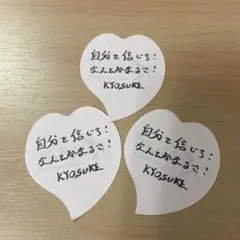 自分を信じろ!
なんとかなるさ!
KYOSUKE
自分を信じろ!
なんとかなるさ!
KYOSUKE
自分を信じろ!
なんとかなるさ!
KYOSUKE